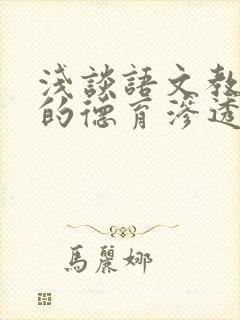 浅談語文教
的德育滲透
馬麗娜